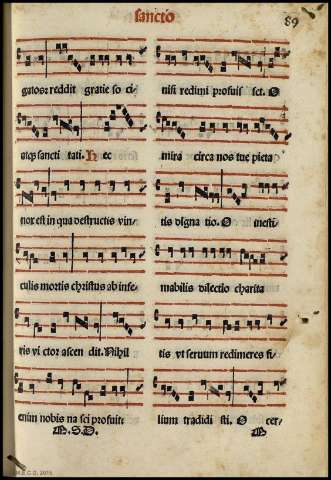 sancto
89
gatos: reddit gratie so ci
atep sancti tati. Hec
nox est in qua destructis vin
culis mortis christus ab infe
ris vi ctor ascen dit. Nihil
enim nobis na sci profuit
nisi redimi profuis set. O
mira circa nos tue pieta
tis digna tio. O inesti
mabilis dilectio charita
tis vt seruum redimeres fi
lium tradidi sti. O cer